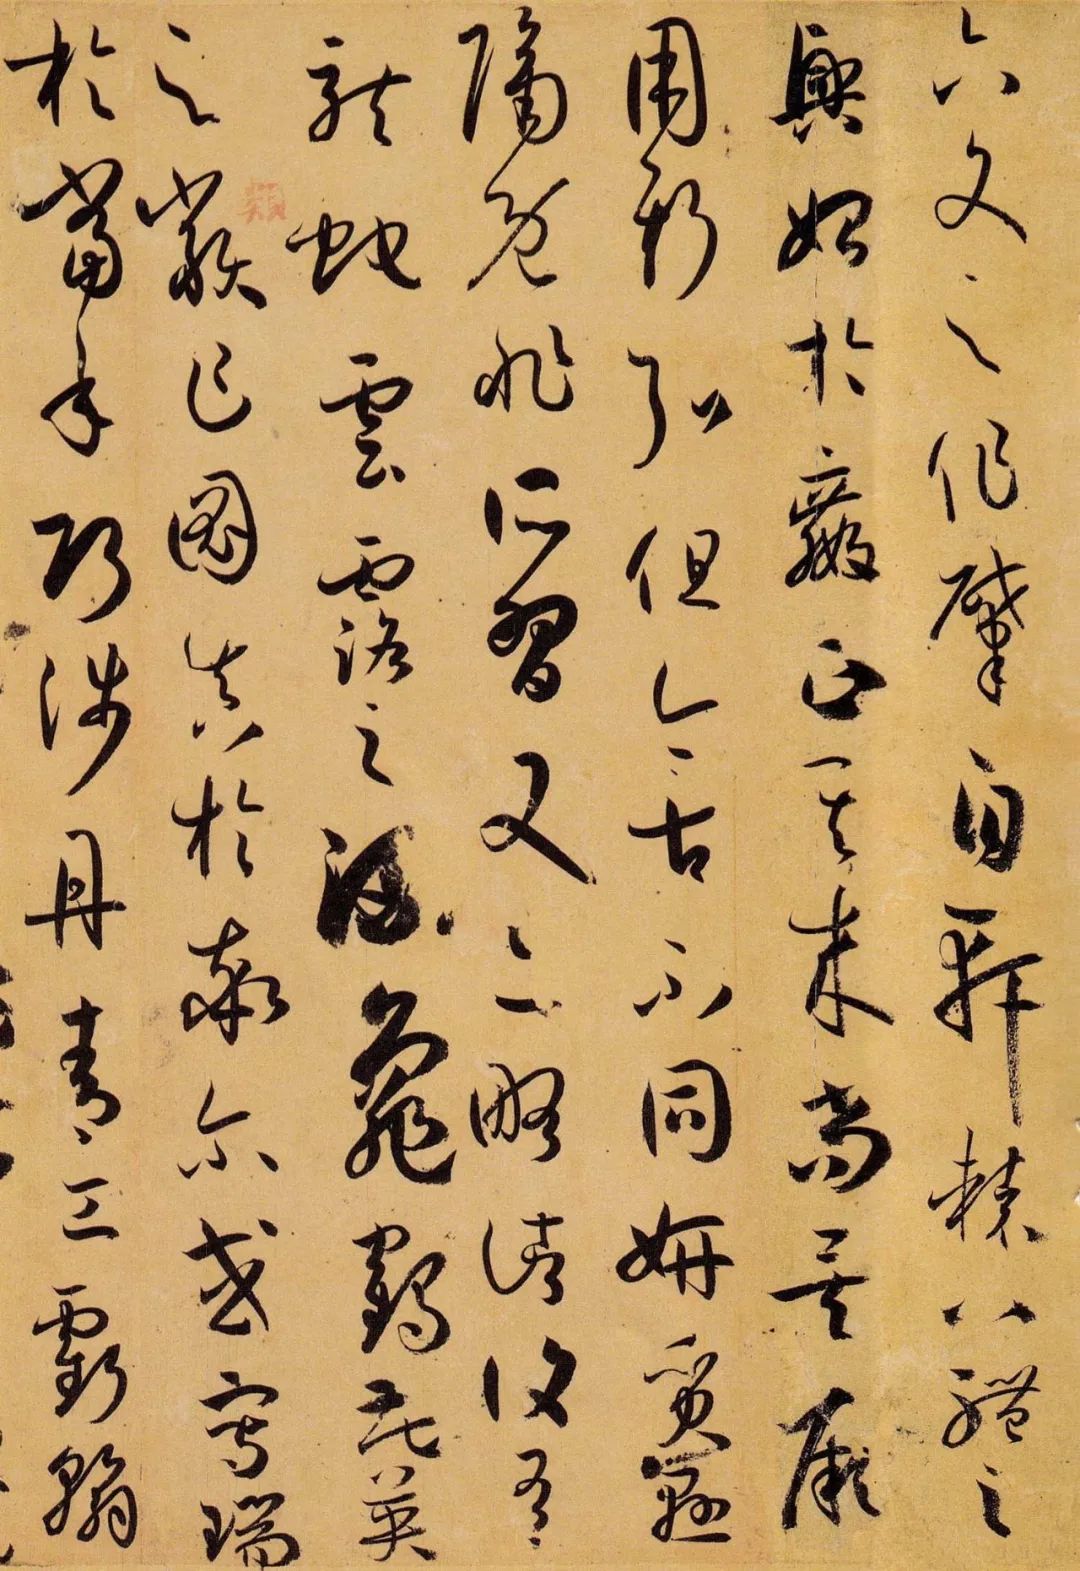 六文之作肇自軒轅八體之
興始於嬴正其来尚矣厥
用斯弘但今古不同妍質懸
隔既非所習又亦略諸復有
龍蛇雲露之流龜鶴花英
之類乍圖真於率尓或寫瑞
於當年巧涉丹青工虧翰